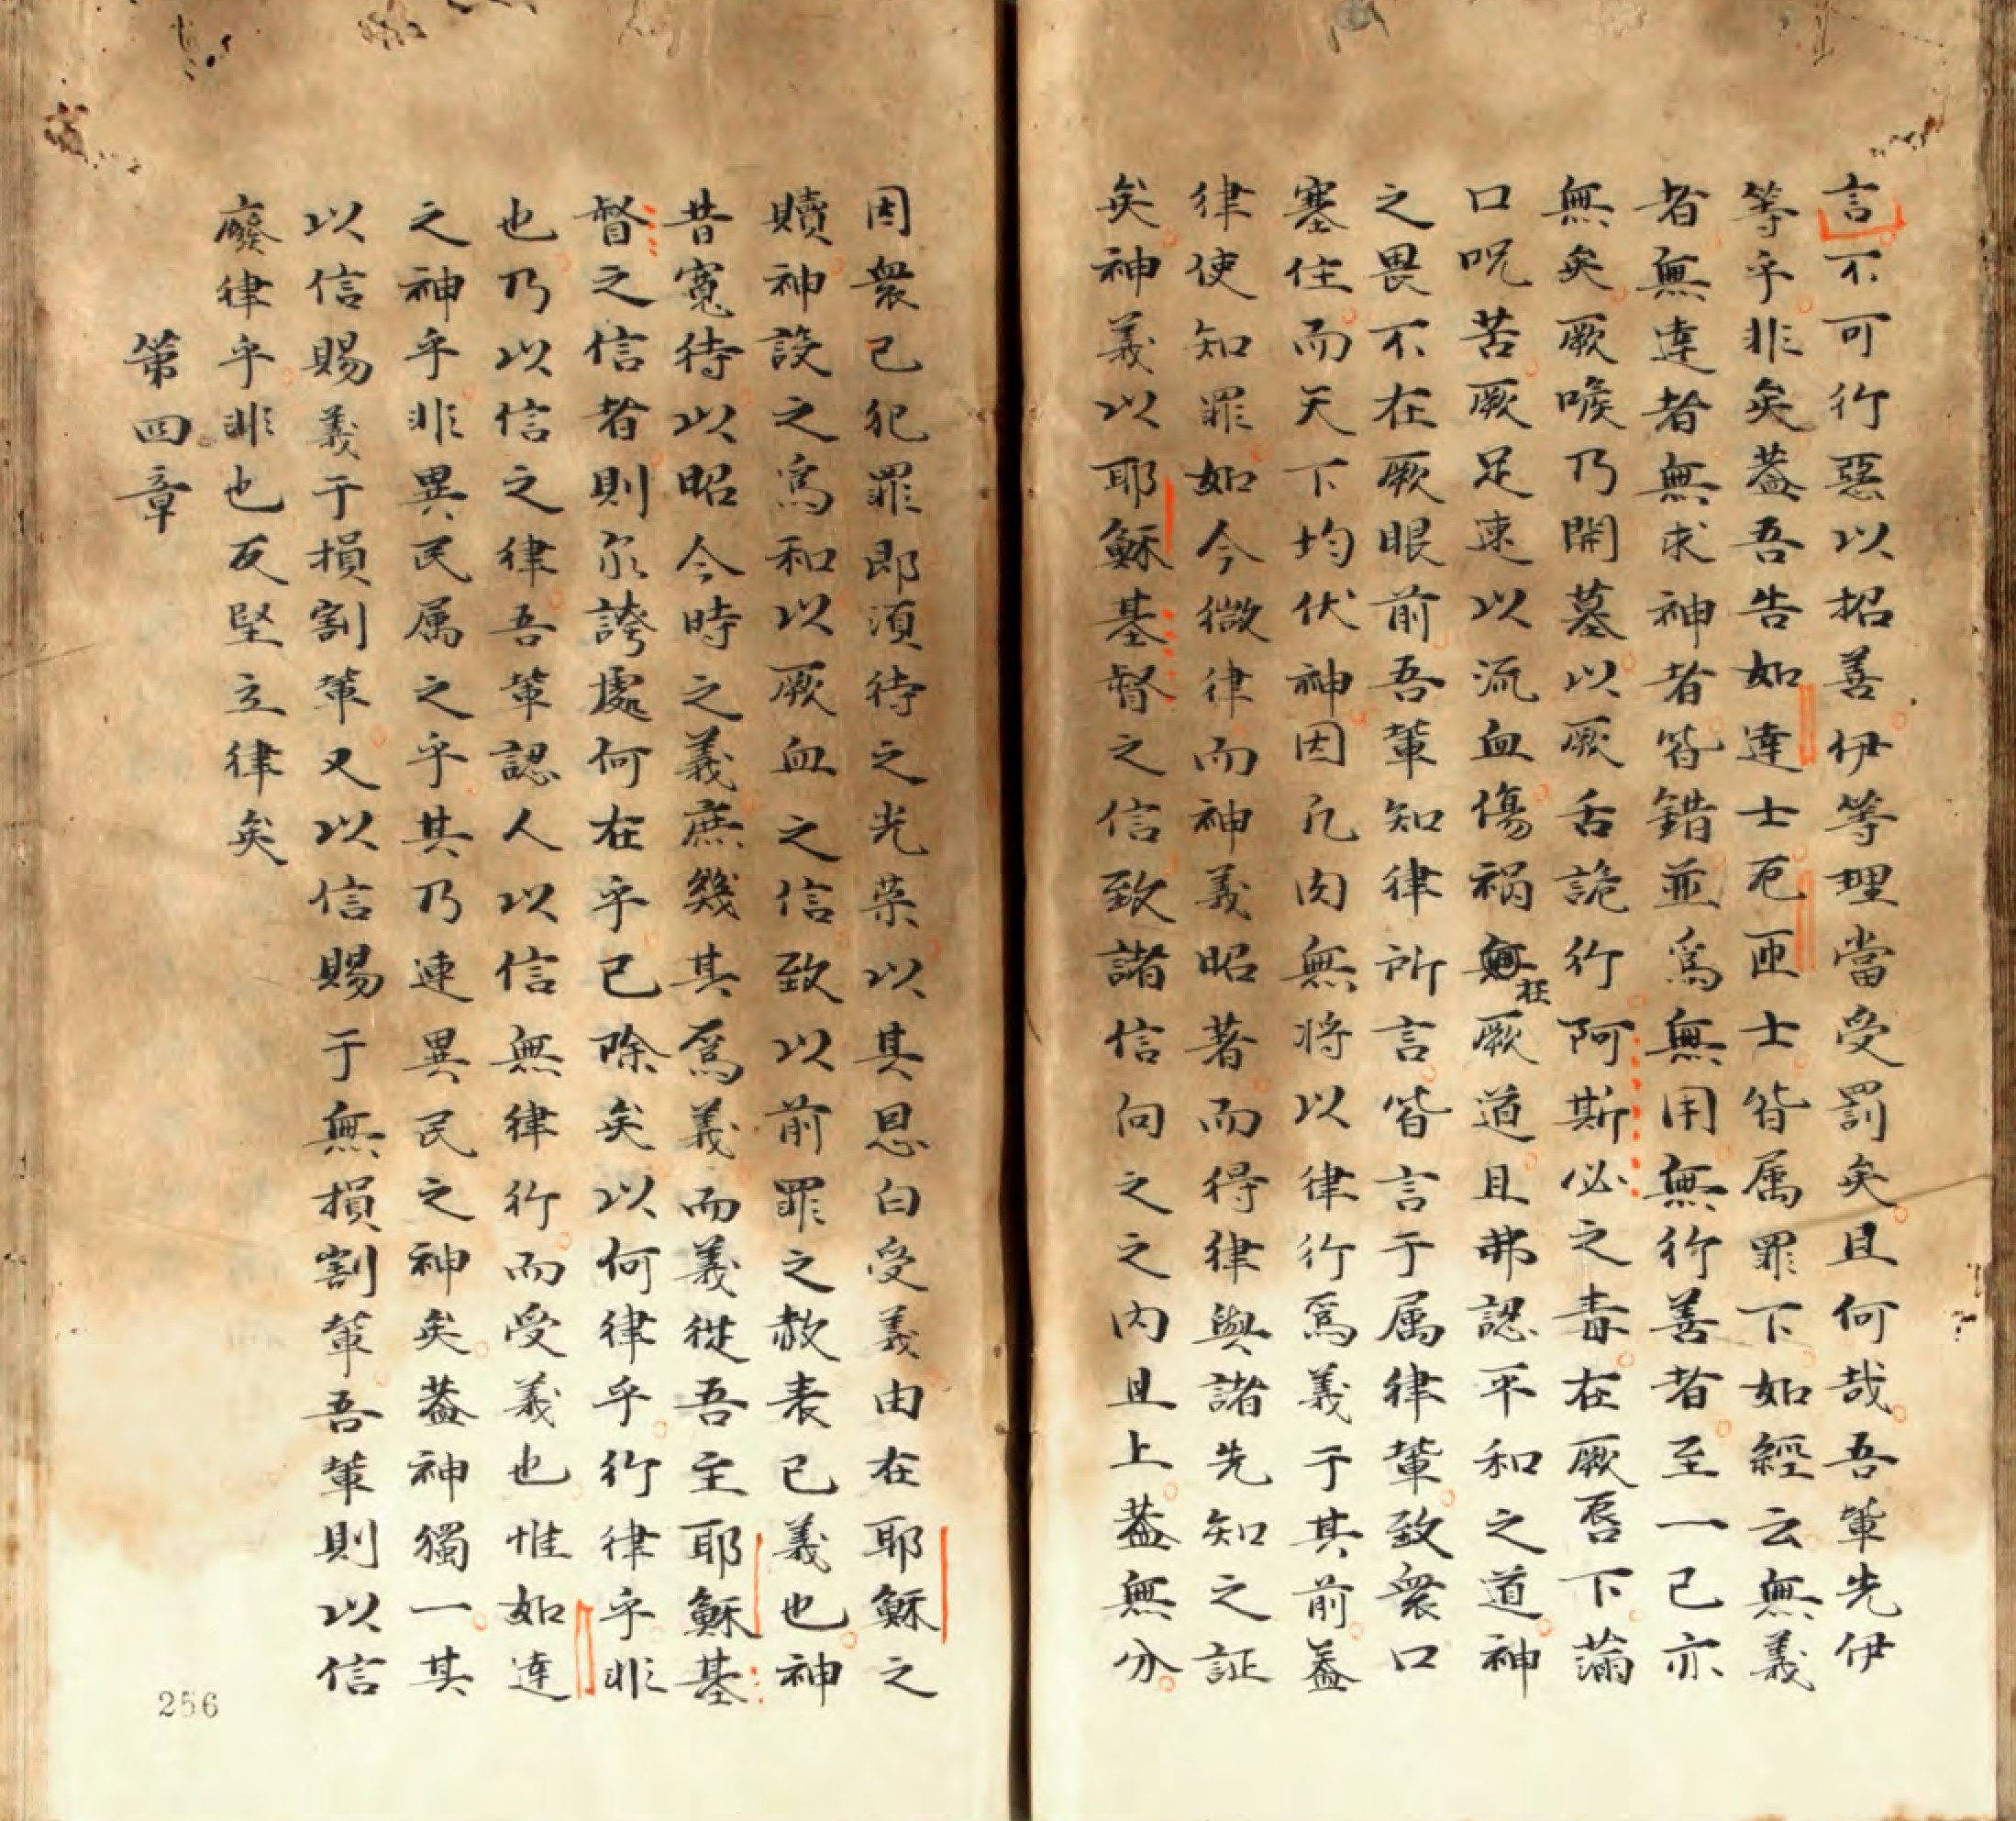 言不可行惡以招善伊等理當受罰矣且何哉吾輩先伊
等乎非矣葢吾告如達士厄匝士皆属罪下如經云無義
者無達者無求神者皆錯並爲無用無行善者至一己亦
無矣厥喉乃開墓以厥舌詭行阿斯必之毒在厥唇下蒲
口呪苦厥足速以流血傷禍枉厥道且弗認平和之道神
之畏不在厥眼前吾輩知律所言皆言于属律輩致衆口
塞住而天下均伏神因凡肉無將以律行爲義于其前葢
律使知罪如今微律而神義昭著而得律與諸先知之証
矣神義以耶穌基督之信致諸信向之之内且上葢無分
因衆已犯罪即湏待之光荣以其恩白受義由在耶穌之
贖神設之爲和以厥血之信致以前罪之赦表已義也神
昔寬待以昭今時之義庶幾其爲義而義從吾主耶穌基
督之信者則尔誇處何在乎已除矣以何律乎行律乎非
也乃以信之律吾輩認人以信無律行而受義也惟如達
之神乎非異民属之乎其乃連異民之神矣葢神獨一其
以信賜義于損割輩又以信賜于無損割輩吾輩則以信
廢律乎非也反堅立律矣
第四章
256